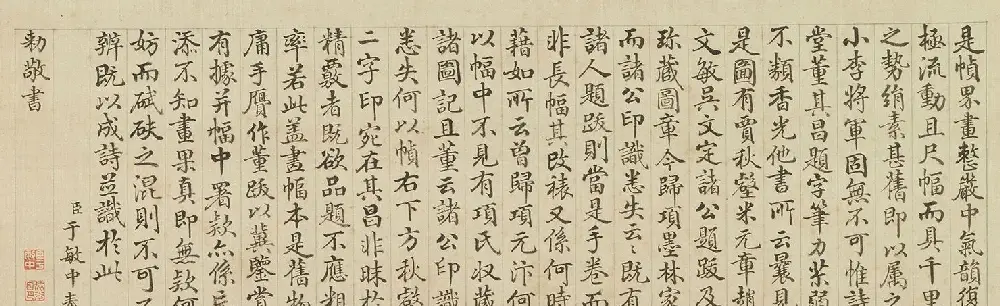 是幀界畫整嚴中氣韻復
極流動且尺幅而具千里
之勢絹素甚舊即以屬之
小李將軍固無不可惟詩
堂董其昌題字筆力柔弱
不類香光他書所云曩見
是圖有賈秋壑米元章趙
文敏吳文定諸公題跋及
珍藏圖章今歸項墨林家
而諸公印識悉失云〻既有
諸人題跋則當是手卷而
非長幅其改裱又係何時
藉如所云曾歸項元汴何
以幅中不見有項氏收藏
諸圖記且董云諸公印識
悉失何以幀右下方秋壑
二字印宛在其昌非昧於
精覈者既欲品題不應粗
率若此蓋畫幅本是舊物
庸手贗作董跋以冀鑒賞
有據并幅中署款亦係
添不知畫果真即無款何
妨而碔砆之混則不可不
辨既以成詩並識於此
臣于敏中奉
勅敬書